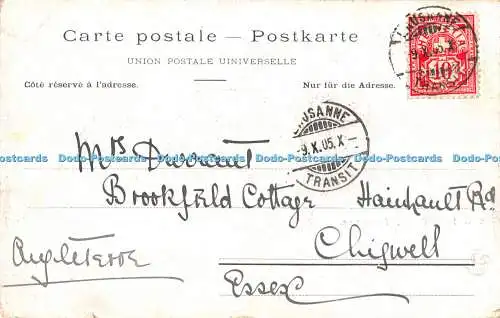 Carte postale — Postkarte
UNION POSTALE UNIVERSELLE
Côté réservé à l'adresse. Nur für die Adresse.
LAUSANNE
9.X.05.X
10
LAUSANNE
-9.X.05.X-
TRANSIT
Mrs Durrant
Dodo-Postcards Dodo-Postcards Dodo-Postcards Dodo-Postcards Dodo-Postcards Dodo-Postcards
Brookfield Cottage Hainhault Rd
Chigwell
Angleterre
Essex